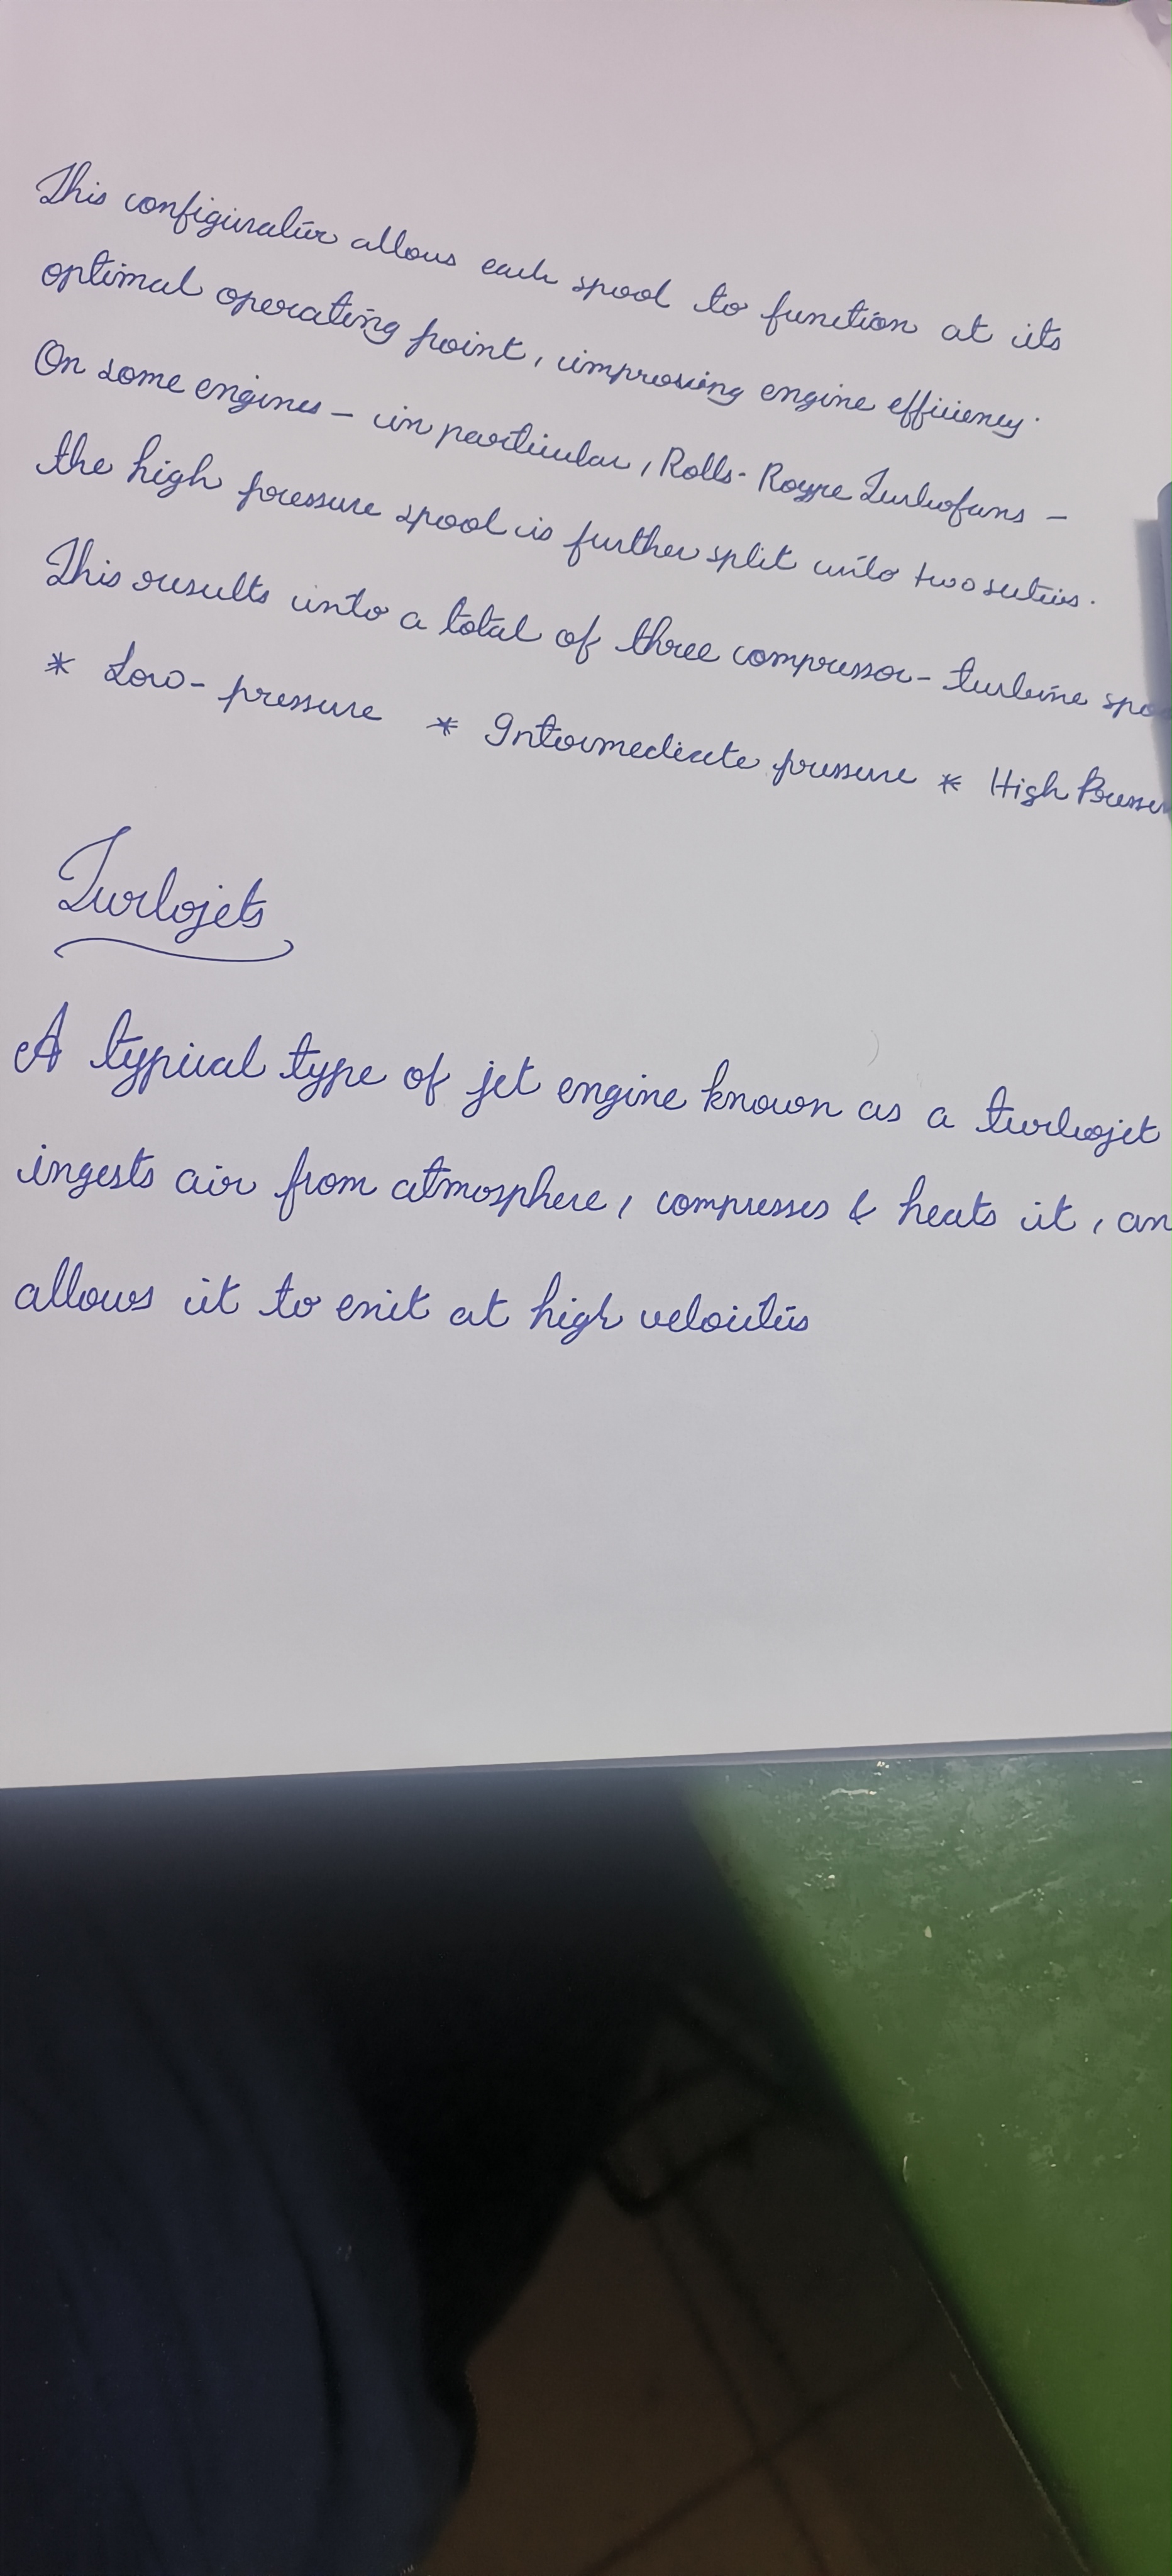 This configuration allows each spool to function at its
optimal operating point, improving engine efficiency.
On some engines - in particular, Rolls-Royce Turbofans -
the high pressure spool is further split into two sections.
This results into a total of three compressor-turbine spo
* Low-pressure * Intermediate pressure * High Pressu
Turbojets
A typical type of jet engine known as a turbojet
ingests air from atmosphere, compresses & heats it, an
allows it to exit at high velocities